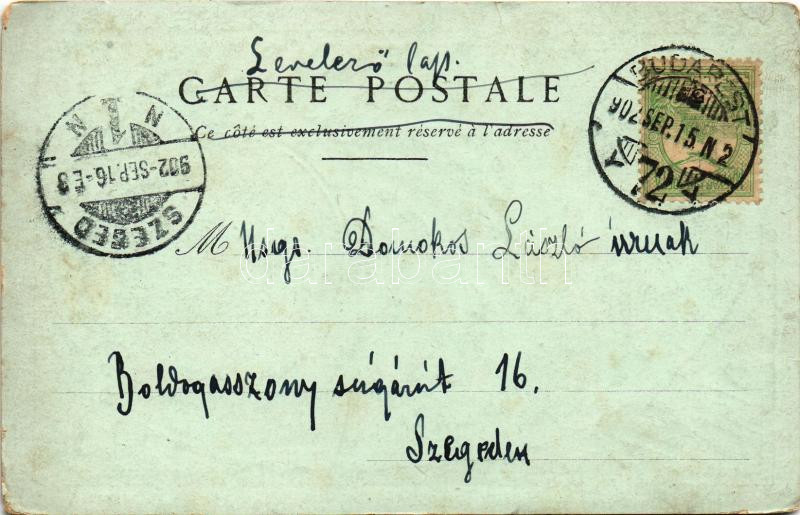 Levelező lap.
CARTE POSTALE
Ce côté est exclusivement réservé à l'adresse
BUDAPEST
902 SEP. 15. N. 2
72
SZEGED
902-SEP.16-E8
N 1 N
M Nsgs. Domokos László úrnak
darabanth
Boldogasszony súgárút 16.
Szegeden